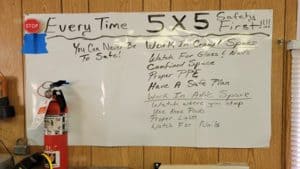 STOP
Every Time 5X5 Safety First!!!!
You Can Never Be To Safe!
Work In Crawl Space
Watch For Glass & Nails
Confined Space
Proper PPE
Have A Safe Plan
Work In Attic Space
Watch where you step
Use Knee Pads
Proper
Watch For Nails